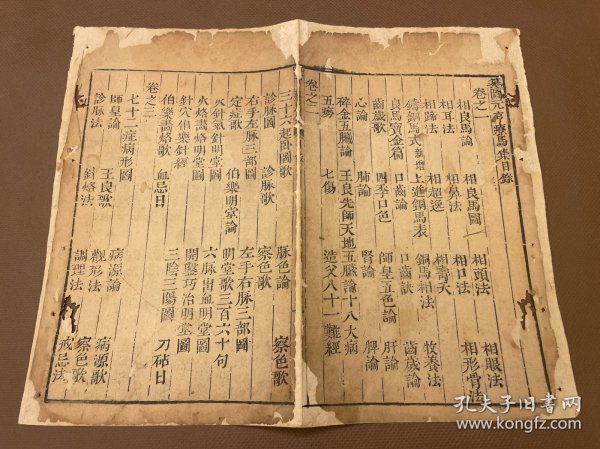 元亨療馬集目錄
卷之一
相良馬論 相良馬圖 相頭法 相眼法
相耳法 相鼻法 相口法 相形骨
相蹄法 相超逸 相壽夭
鑄銅馬式 上進銅馬表 銅馬相法 牧養法
良馬寶金篇 口齒論 口齒訣 齒歲論
齒歲歌 四季口色 師皇五色論 肝論
心論 肺論 腎論 脾論
碎金五臟論 王良先師天地五臟論 十八大病
五癆 七傷 造父八十一難經
卷之二
三十六起臥圖歌 脉色論 察色歌
診脉圖 診脉歌 察色歌
右手左脉三部圖 左手右脉三部圖
定症歌 伯樂明堂論 明堂歌三百六十句
火針氣針明堂圖 六脉出血明堂圖
火烙畵烙明堂圖 開竅巧治明堂圖
針穴伯樂針經 三陰三陽圖
伯樂畵烙歌 血忌日 刀砧日
卷之三
七十二症病形圖
師皇論 王良歌 病源論 病源歌
診脉法 針烙法 觀形法 察色歌
調理法 戒忌法
孔夫子旧书网
www.kongfz.com